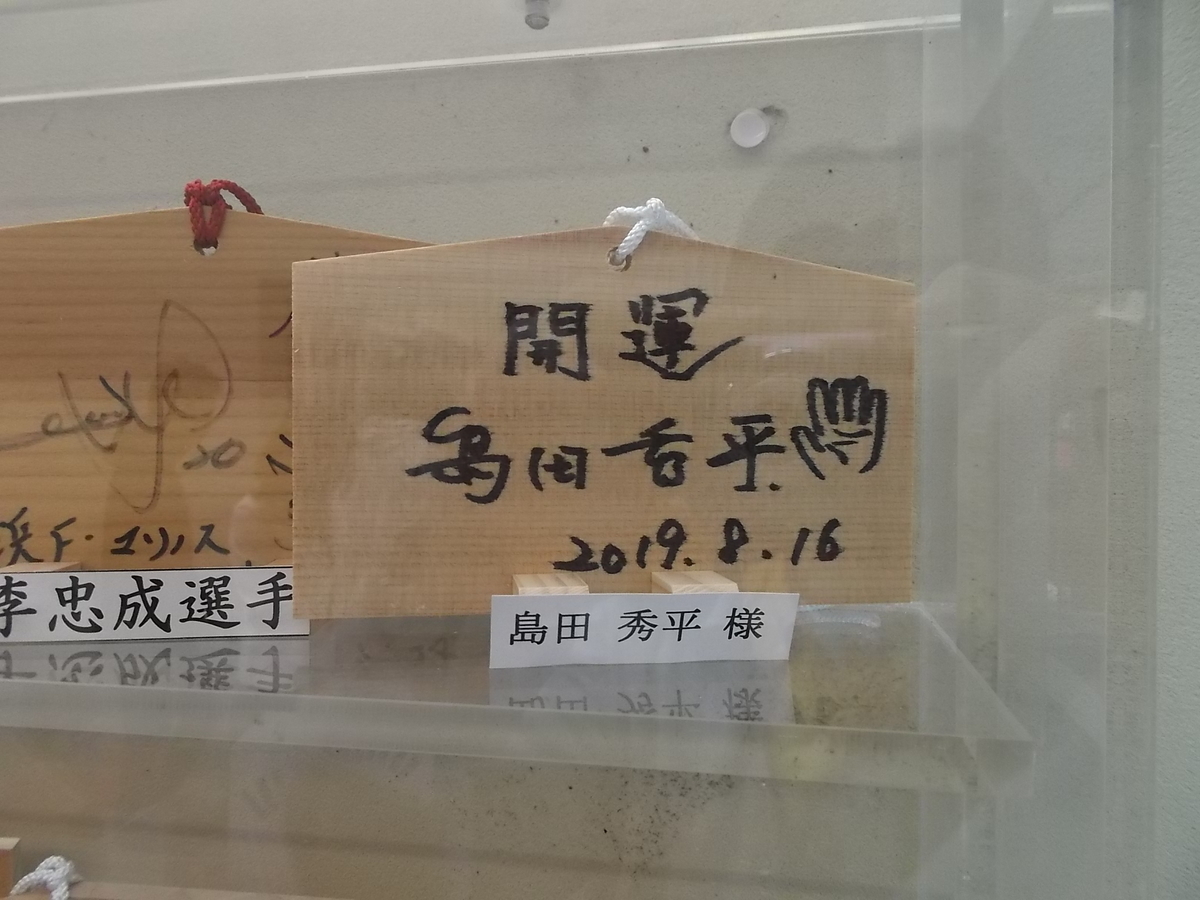 開運
島田秀平
2019.8.16
島田 秀平 様
20
浜F・マリノス
李忠成選手